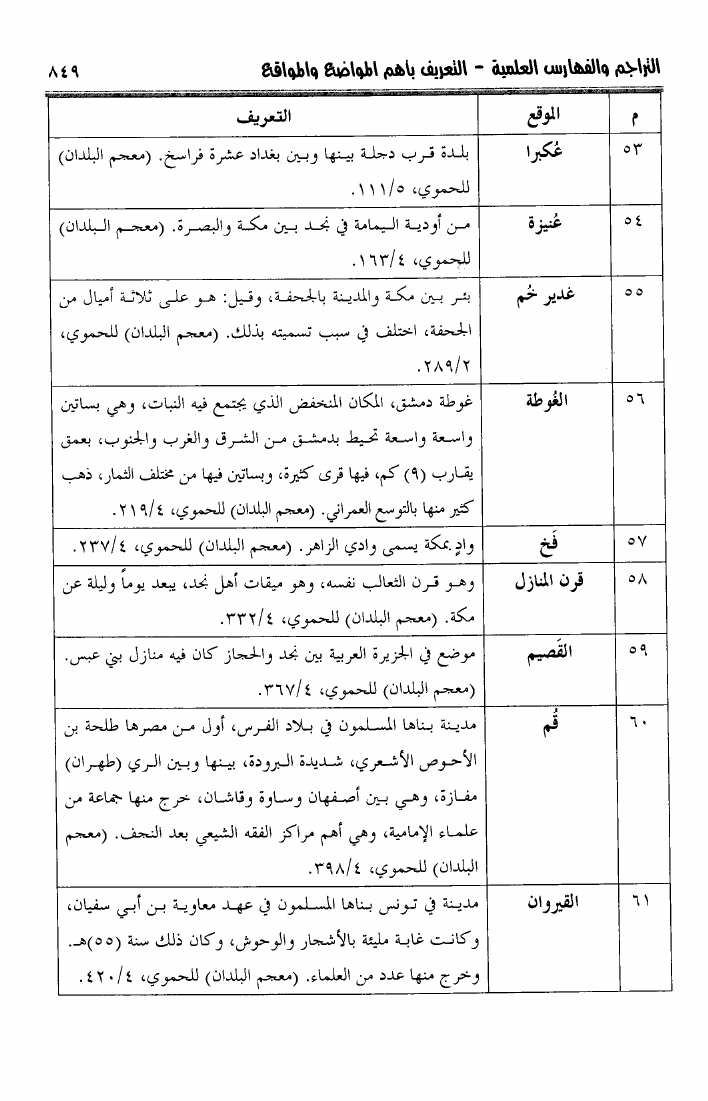 التراجم والفهارس العلمية - التعريف بأهم المواضع والمواقع ٨٤٩
م الموقع التعريف
٥٣ عُكبرا بلدة قرب دجلة بينها وبين بغداد عشرة فراسخ. (معجم البلدان)
للحموي، ١١١/٥.
٥٤ عُنيزة من أودية اليمامة في نجد بين مكة والبصرة. (معجم البلدان)
للحموي، ١٦٣/٤.
٥٥ غدير خُم بئر بين مكة والمدينة بالجحفة، وقيل: هو على ثلاثة أميال من
الجحفة، اختلف في سبب تسميته بذلك. (معجم البلدان) للحموي،
٢٨٩/٢.
٥٦ الغُوطة غوطة دمشق، المكان المنخفض الذي يجتمع فيه النبات، وهي بساتين
واسعة واسعة تحيط بدمشق من الشرق والغرب والجنوب، بعمق
يقارب (٩) كم، فيها قرى كثيرة، وبساتين فيها من مختلف الثمار، ذهب
كثير منها بالتوسع العمراني. (معجم البلدان) للحموي، ٢١٩/٤.
٥٧ فَخ وادٍ بمكة يسمى وادي الزاهر. (معجم البلدان) للحموي، ٢٣٧/٤.
٥٨ قرن المنازل وهو قرن الثعالب نفسه، وهو ميقات أهل نجد، يبعد يوماً وليلة عن
مكة. (معجم البلدان) للحموي، ٣٣٢/٤.
٥٩ القَصيم موضع في الجزيرة العربية بين نجد والحجاز كان فيه منازل بني عبس.
(معجم البلدان) للحموي، ٣٦٧/٤.
٦٠ قُم مدينة بناها المسلمون في بلاد الفرس، أول من مصرها طلحة بن
الأحوص الأشعري، شديدة البرودة، بينها وبين الري (طهران)
مفازة، وهي بين أصفهان وساوة وقاشان، خرج منها جماعة من
علماء الإمامية، وهي أهم مراكز الفقه الشيعي بعد النجف. (معجم
البلدان) للحموي، ٣٩٨/٤.
٦١ القيروان مدينة في تونس بناها المسلمون في عهد معاوية بن أبي سفيان،
وكانت غابة مليئة بالأشجار والوحوش، وكان ذلك سنة (٥٥)هـ.
وخرج منها عدد من العلماء. (معجم البلدان) للحموي، ٤٢٠/٤.